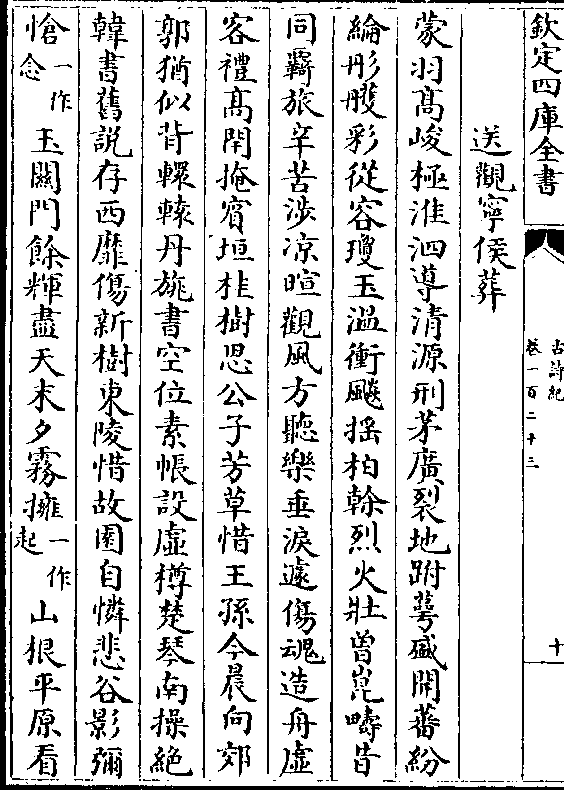 欽定四庫全書
古詩紀
卷一百二十三
十
送觀寧侯葬
蒙羽高峻極淮泗導清源刑茅廣裂地跗萼盛開蕃紛
綸彤雘彩從容瓊玉溫衝飈摇柏榦烈火壯曽崑疇昔
同羈旅辛苦涉凉暄觀風方聽樂垂淚遽傷魂造舟虛
客禮高閈掩賓垣桂樹思公子芳草惜王孫今晨向郊
郭猶似背轘轅丹旐書空位素帳設虛樽楚琴南操絶
韓書舊説存西靡傷新樹東陵惜故園自憐悲谷影彌
愴一作念玉闗門餘輝盡天末夕霧擁一作起山根平原看